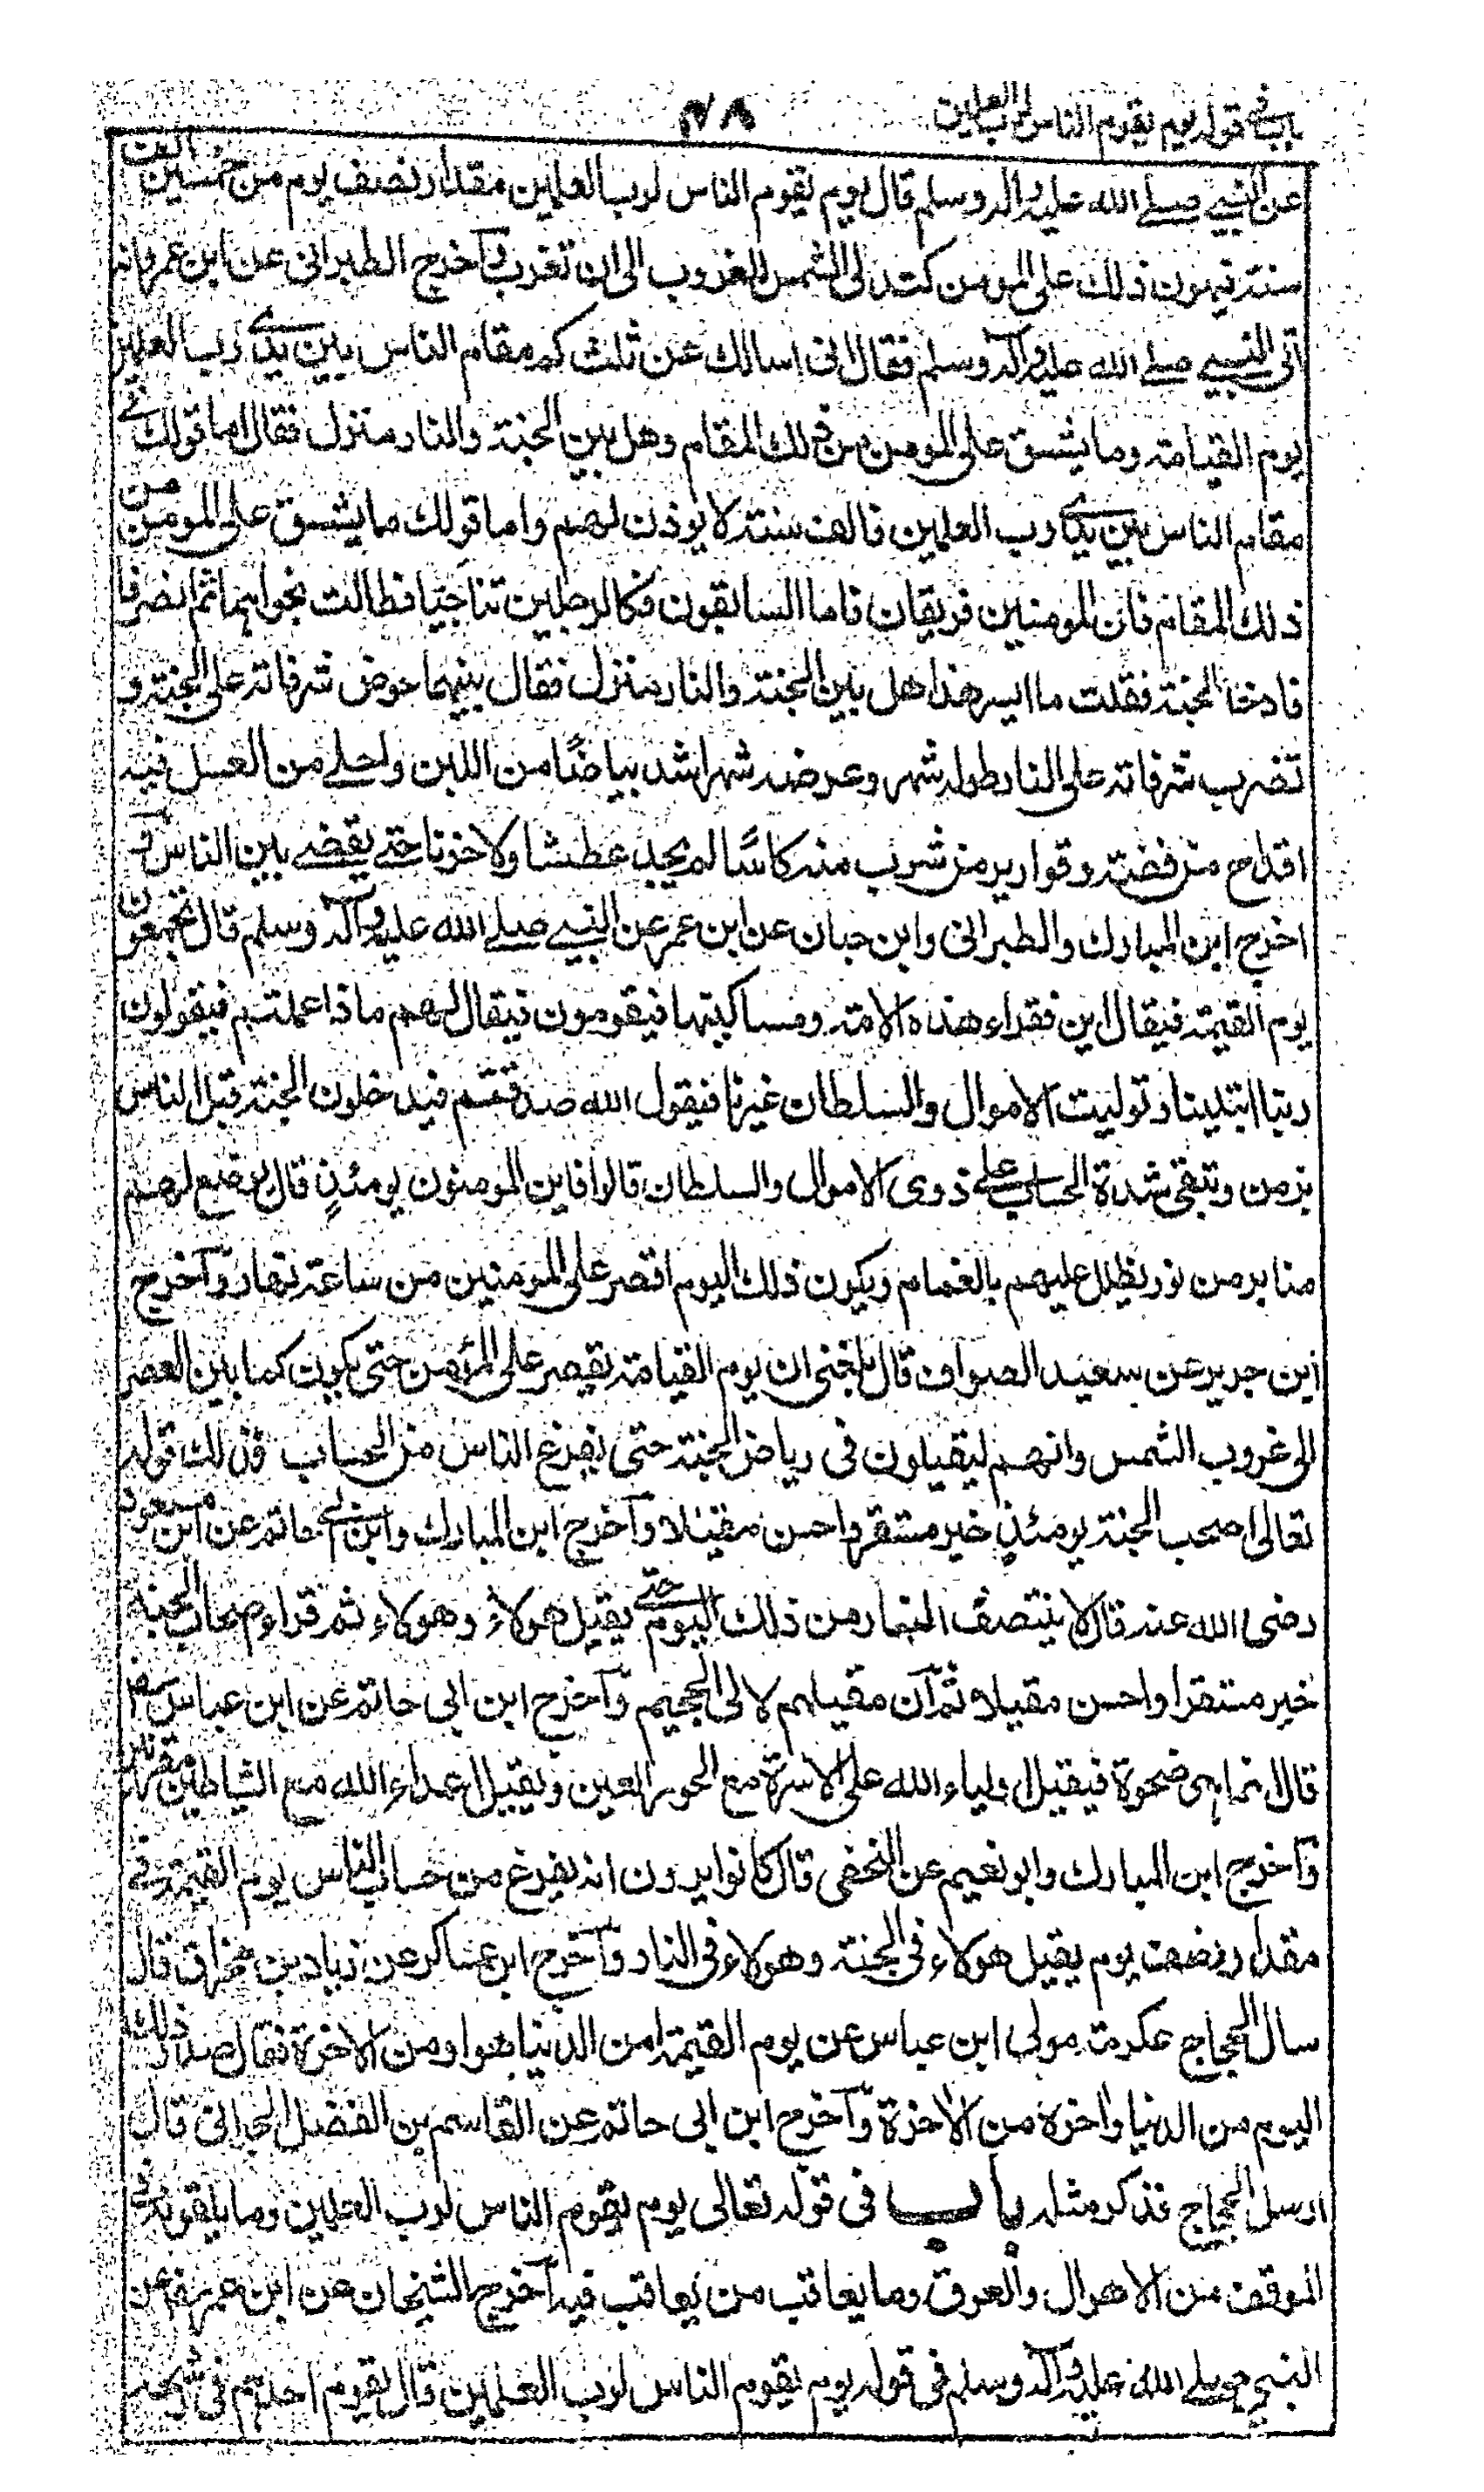 باب في قوله يوم يقوم الناس لرب العلمين
٧٨
عن النبي صلے الله عليه واله وسلم قال يوم يقوم الناس لرب العلمين مقدار نصف يوم من خمسين الف
سنة فيهون ذلك على المومن كتدلى الشمس للغروب الى ان تغرب وآخرج الطبرانى عن ابن عمر وانه
اتى النبي صلے الله عليه وآله وسلم فقال انى اسالك عن ثلث كم مقام الناس بين يدى رب العلمين
يوم القيامة وما يشق على المومن من ذلك المقام وهل بين الجنة والنار منزل فقال اما قولك في
مقام الناس بين يدى رب العلمين فالف سنة لا يوذن لهم واما قولك ما يشق على المومن من
ذلك المقام فان المومنين فريقان فاما السابقون فكالرجلين تناجيا فطالت نجواهما ثم انصرفا
فادخلا الجنة فقلت ما ايسر هذا هل بين الجنة والنار منزل فقال بينهما حوض شرفاته على الجنة و
تضرب شرفاته على النار طوله شهر وعرضه شهر اشد بياضًا من اللبن واحلے من العسل فيه
اقداح من فضة وقوارير من شرب منه كاسًا لم يجد عطشا ولا حزنا حتے يقضے بين الناس و
اخرج ابن المبارك والطبرانى وابن حبان عن ابن عمر عن النبي صلے الله عليه وآله وسلم قال تجمعون
يوم القيمة فيقال اين فقراء هذه الامة ومساكينها فيقومون فيقال لهم ماذا عملتم فيقولون
ربنا ابتلينا وتوليت الاموال والسلطان غيرنا فيقول الله صدقتم فيدخلون الجنة قبل الناس
بزمن وتبقى شدة الحساب علے ذوى الاموال والسلطان قالوا فاين المومنون يومئذٍ قال يوضع لهم
منابر من نور يظلل عليهم بالغمام ويكون ذلك اليوم اقصر على المومنين من ساعة نهار وآخرج
ابن جرير عن سعيد الصواف قال بلغنى ان يوم القيامة يقصر على المؤمن حتى يكون كما بين العصر
الى غروب الشمس وانهم ليقيلون فى رياض الجنة حتى يفرغ الناس من الحساب فذلك قوله
تعالى اصحب الجنة يومئذٍ خير مستقرا واحسن مقيلا وآخرج ابن المبارك وابن ابى حاتم عن ابن مسعود
رضى الله عنه قال لا ينتصف النهار من ذلك اليوم حتے يقيل هولاء وهولاء ثم قرا اصحاب الجنة
خير مستقرا واحسن مقيلا ثم ان مقيلهم لا لى الجحيم وآخرج ابن ابى حاتم عن ابن عباس رض
قال انما هى ضحوة فيقيل اولياء الله على الاسرة مع الحور العين ويقيل اعداء الله مع الشياطين مقرنين
وآخرج ابن المبارك وابو نعيم عن النخعى قال كانوا يرون انه يفرغ من حساب الناس يوم القيمة في
مقدار نصف يوم يقيل هولاء فى الجنة وهولاء فى النار وآخرج ابن عساكر عن زياد بن مخراق قال
سال الحجاج عكرمة مولى ابن عباس عن يوم القيمة امن الدنيا هوا ومن الاخرة فقال صدر ذلك
اليوم من الدنيا واخره من الاخرة وآخرج ابن ابى حاتم عن القاسم بن الفضل الحدانى قال
ارسل الحجاج فذكر مثله باب فى قوله تعالى يوم يقوم الناس لرب العلمين وما يلقونه فى
الموقف من الاهوال والعرق وما يعاقب من يعاقب فيه آخرج الشيخان عن ابن عمر رض عن
النبي صلے الله عليه وآله وسلم فى قوله يوم يقوم الناس لرب العلمين قال يقوم احدهم فى رشحه